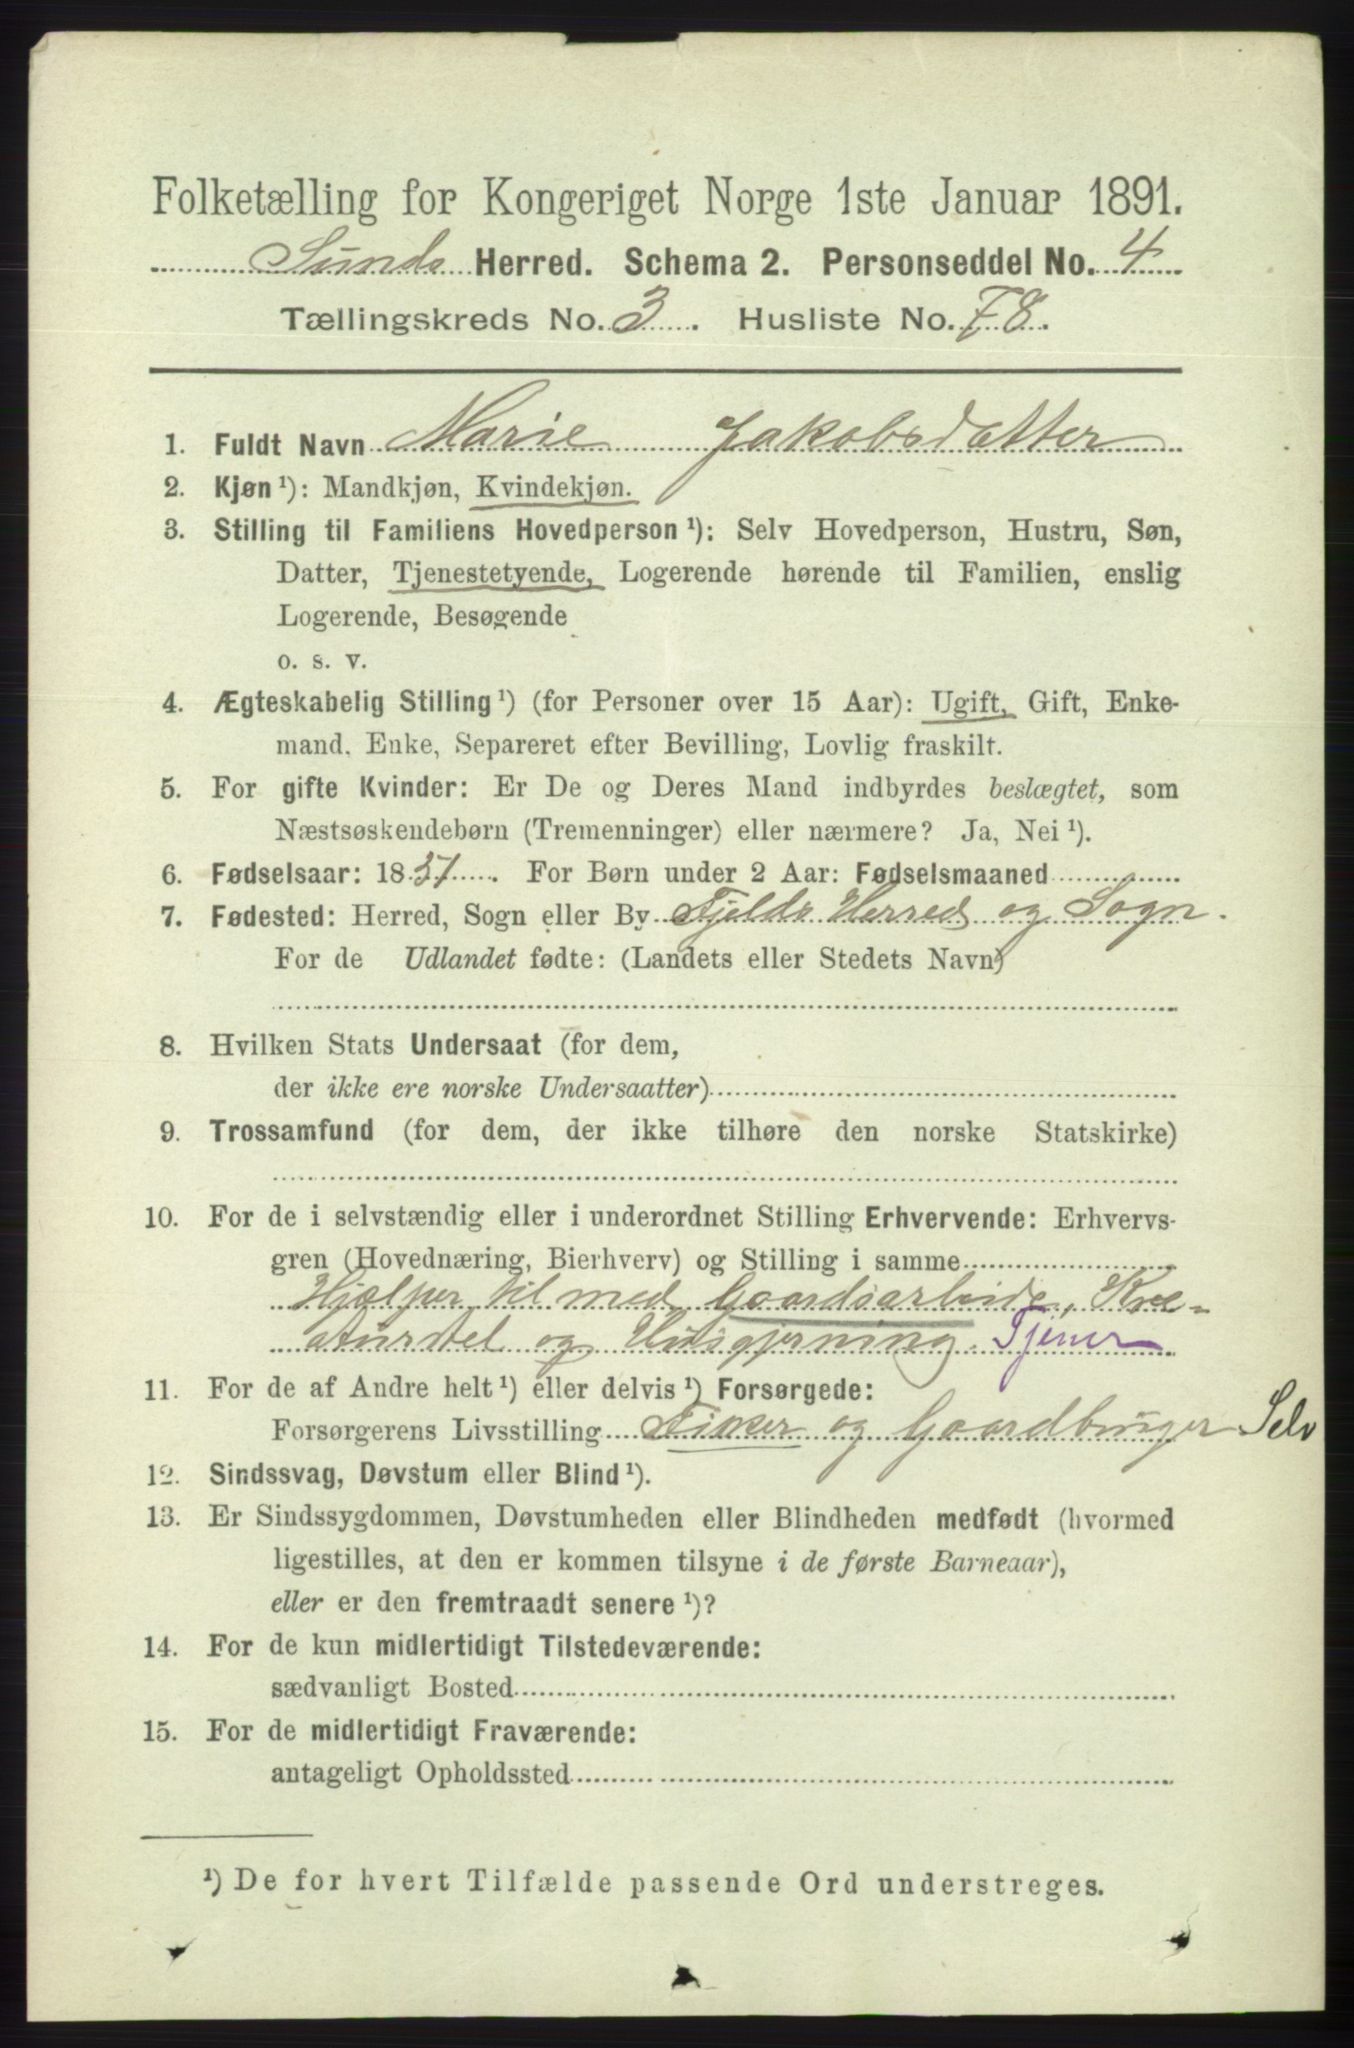 Folketælling for Kongeriget Norge 1ste Januar 1891.
Sunds Herred. Schema 2. Personseddel No. 4
Tællingskreds No. 3. Husliste No. 78.
1. Fuldt Navn Marie Jakobsdatter
2. Kjøn¹): Mandkjøn, Kvindekjøn.
3. Stilling til Familiens Hovedperson¹): Selv Hovedperson, Hustru, Søn,
Datter, Tjenestetyende, Logerende hørende til Familien, enslig
Logerende, Besøgende
o. s. v.
4. Ægteskabelig Stilling¹) (for Personer over 15 Aar): Ugift, Gift, Enke-
mand, Enke, Separeret efter Bevilling, Lovlig fraskilt.
5. For gifte Kvinder: Er De og Deres Mand indbyrdes beslægtet, som
Næstsøskendebørn (Tremenninger) eller nærmere? Ja, Nei¹).
6. Fødselsaar: 1837. For Børn under 2 Aar: Fødselsmaaned
7. Fødested: Herred, Sogn eller By Fjelds Herred og Sogn.
For de Udlandet fødte: (Landets eller Stedets Navn)
8. Hvilken Stats Undersaat (for dem,
der ikke ere norske Undersaatter)
9. Trossamfund (for dem, der ikke tilhøre den norske Statskirke)
10. For de i selvstændig eller i underordnet Stilling Erhvervende: Erhvervs-
gren (Hovednæring, Bierhverv) og Stilling i samme
Hjælper til med Gaardsarbeide, Kre-
aturstel og Husgjerning. Tjener
11. For de af Andre helt¹) eller delvis¹) Forsørgede:
Forsørgerens Livsstilling Fisker og Gaardbruger Selv
12. Sindssvag, Døvstum eller Blind¹).
13. Er Sindssygdommen, Døvstumheden eller Blindheden medfødt (hvormed
ligestilles, at den er kommen tilsyne i de første Barneaar),
eller er den fremtraadt senere¹)?
14. For de kun midlertidigt Tilstedeværende:
sædvanligt Bosted
15. For de midlertidigt Fraværende:
antageligt Opholdssted
¹) De for hvert Tilfælde passende Ord understreges.